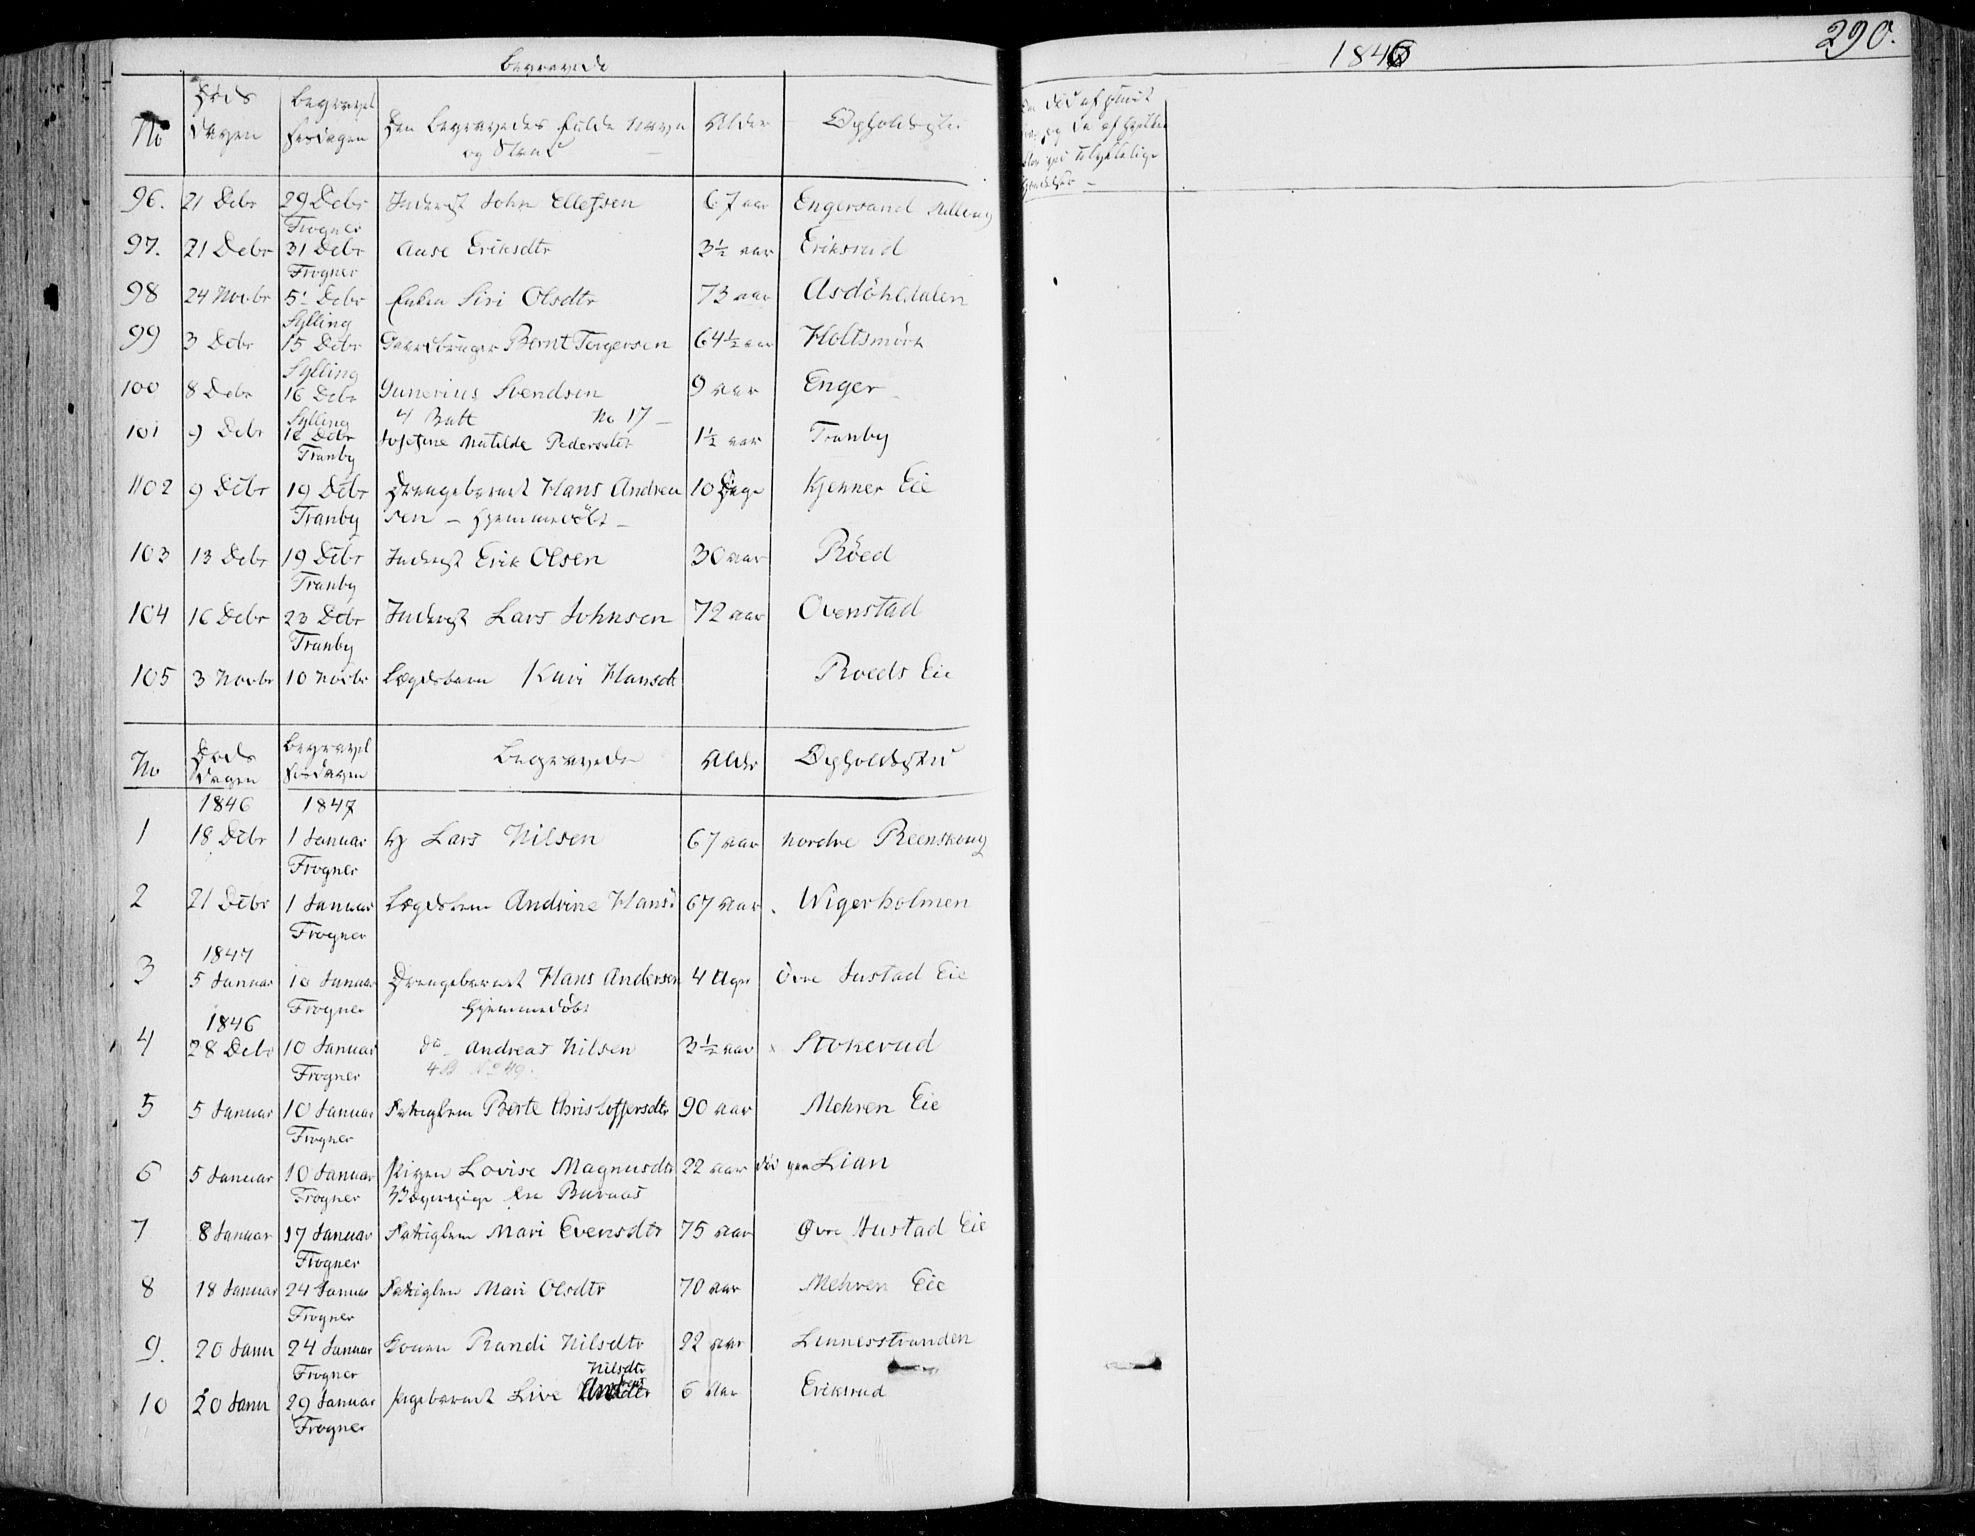 Begravede
1846
290.
No
Døds
dagen
Begravel
sesdagen
Den Begravedes fulde Navn
og Stand
Alder
Opholdssted
96. 21 Debr 29 Debr Inderst John Ellefsen 67 aar Engersand Killing
Frogner
97. 21 Debr 31 Debr Aase Eriksdtr 3½ aar Eriksrud
Frogner
98 24 Novbr 5 Debr Enken Siri Olsdtr 73 aar Asdöhldalen
Sylling
99 3 Debr 15 Debr Gaardbruger Bernt Torgersen 64½ aar Holtsmörk
Sylling
100 8 Debr 16 Debr Gunerius Svendsen 9 aar Enger
Sylling 4 Batt No 17 –
101 9 Debr 16 Debr Josefine Matilde Pedersdtr 1½ aar Tranby
Tranby
102 9 Debr 19 Debr Drengebarnet Hans Andrea 10 Dage Kjenner Eie
Tranby sen – Hjemmedöbt –
103 13 Debr 19 Debr Inderst Erik Olsen 30 aar Röed
Tranby
104 16 Debr 23 Debr Inderst Lars Johnsen 72 aar Ovenstad
Tranby
105 3 Novbr 10 Novbr Lægdsbarn Kari Hansdt Roeds Eie
No
Døds
dagen
Begravel
sesdagen
Begravede
Alder
Opholdssted
1846 1847
1 18 Debr 1 Januar Lars Nilsen 67 aar Nordre Reenskoug
Frogner
2 21 Debr 1 Januar Lægdslem Andrine Hansd 67 aar Wigerholmen
Frogner
1847
3 5 Januar 10 Januar Drengebarnet Hans Andersen 4 Uger Övre Justad Eie
Frogner Hjemmedöbt
1846
4 28 Debr 10 Januar do Andreas Nilsen 3½ aar Stokerud
Frogner 4 B No 49.
5 5 Januar 10 Januar Fattiglem Berte Christoffersdtr 90 aar Mehren Eie
Frogner
6 5 Januar 10 Januar Pigen Lovise Magnusdtr 22 aar död paa Lian
Frogner fra Buraas
7 8 Januar 17 Januar Fattiglem Mari Evensdtr 75 aar Øvre Justad Eie
Frogner
8 18 Januar 24 Januar Fattiglem Mari Olsdtr 70 aar Mehren Eie
Frogner
9. 20 Janu 24 Januar Konen Randi Nilsdtr 22 aar Linnesstranden
Frogner Nilsdtr
10 20 Janu 29 Januar Pigebarnet Live 6 Aar Eriksrud
Frogner